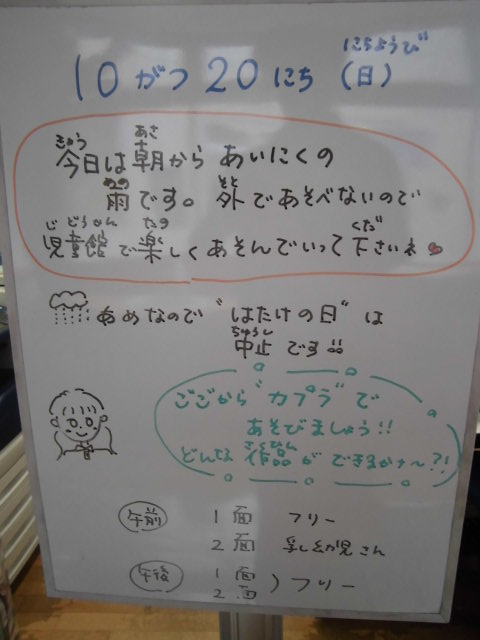 にちようび
10がつ20にち(日)
きょう あさ
今日は朝から あいにくの
あめ そと
雨です。外であそべないので
じどうかん たの くだ
児童館で楽しくあそんでいって下さいネ
あめなので"はたけの日"は
ちゅうし
中止です!!
ごごから"カプラ"で
あそびましょう!!
さくひん
どんな作品ができるかな~?!
午前 1面 フリー
2面 乳幼児さん
午後 1面
2面 ) フリー